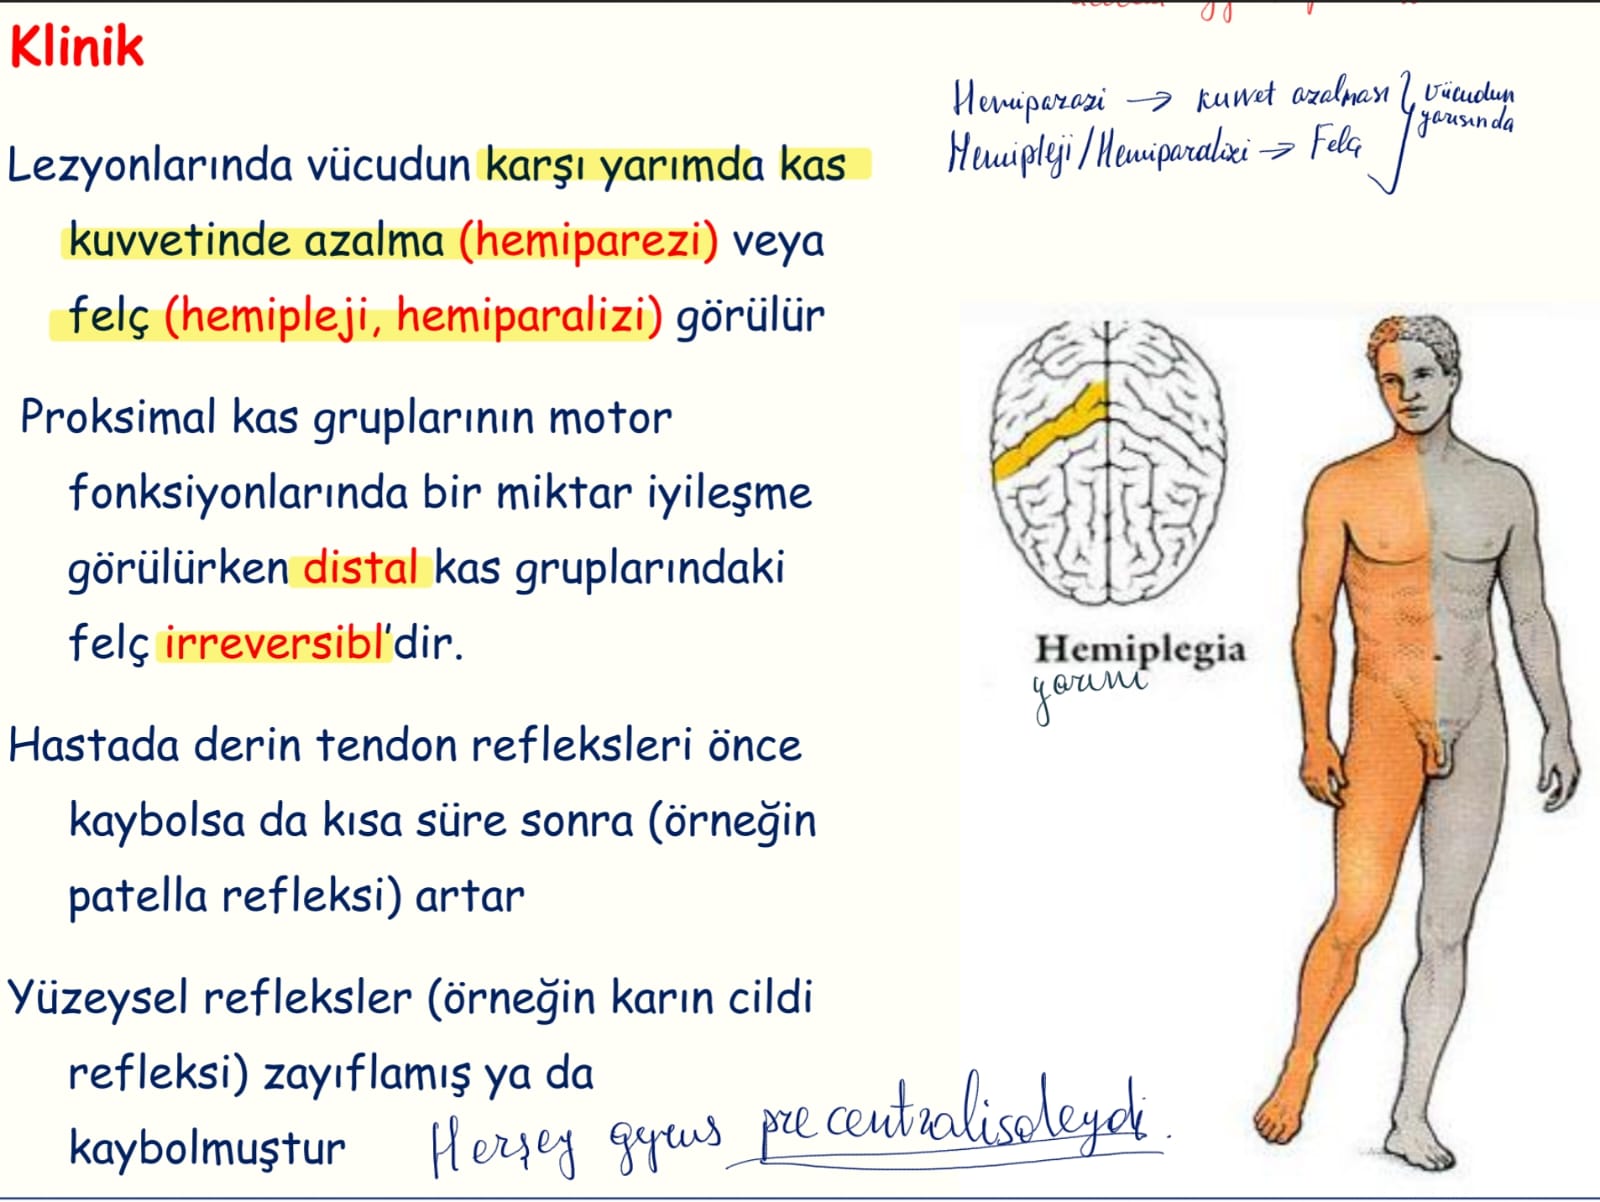 Klinik
Hemiparazi → kuvvet azalması
Hemipleji/Hemiparalizi → Felç
vücudun
yarısında
Lezyonlarında vücudun karşı yarımda kas
kuvvetinde azalma (hemiparezi) veya
felç (hemipleji, hemiparalizi) görülür
Proksimal kas gruplarının motor
fonksiyonlarında bir miktar iyileşme
görülürken distal kas gruplarındaki
felç irreversibl'dir.
Hemiplegia
yarım
Hastada derin tendon refleksleri önce
kaybolsa da kısa süre sonra (örneğin
patella refleksi) artar
Yüzeysel refleksler (örneğin karın cildi
refleksi) zayıflamış ya da
kaybolmuştur
Herşey gyrus precentralisdeydi.